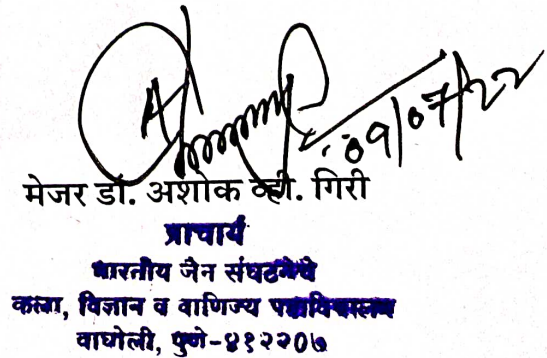 09/07/22
मेजर डॉ. अशोक व्ही. गिरी
प्राचार्य
भारतीय जैन संघटनेचे
कला, विज्ञान व वाणिज्य महाविद्यालय
वाघोली, पुणे-४१२२०७